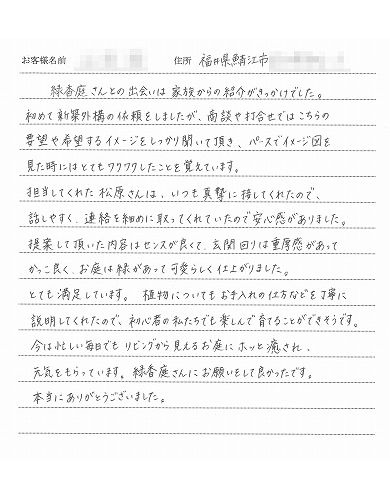 お客様名前 住所 福井県鯖江市
緑香庭さんとの出会いは家族からの紹介がきっかけでした。
初めて新築外構の依頼をしましたが、商談や打合せではこちらの
要望や希望するイメージをしっかり聞いて頂き、パースでイメージ図を
見た時にはとてもワクワクしたことを覚えています。
担当してくれた松原さんは、いつも真摯に接してくれたので、
話しやすく、連絡を細めに取ってくれていたので安心感がありました。
提案して頂いた内容はセンスが良くて、玄関回りは重厚感があって
かっこ良く、お庭は緑があって可愛らしく仕上がりました。
とても満足しています。 植物についてもお手入れの仕方などを丁寧に
説明してくれたので、初心者の私たちでも楽しんで育てることができそうです。
今は忙しい毎日でもリビングから見えるお庭にホッと癒され、
元気をもらっています。緑香庭さんにお願いをして良かったです。
本当にありがとうございました。